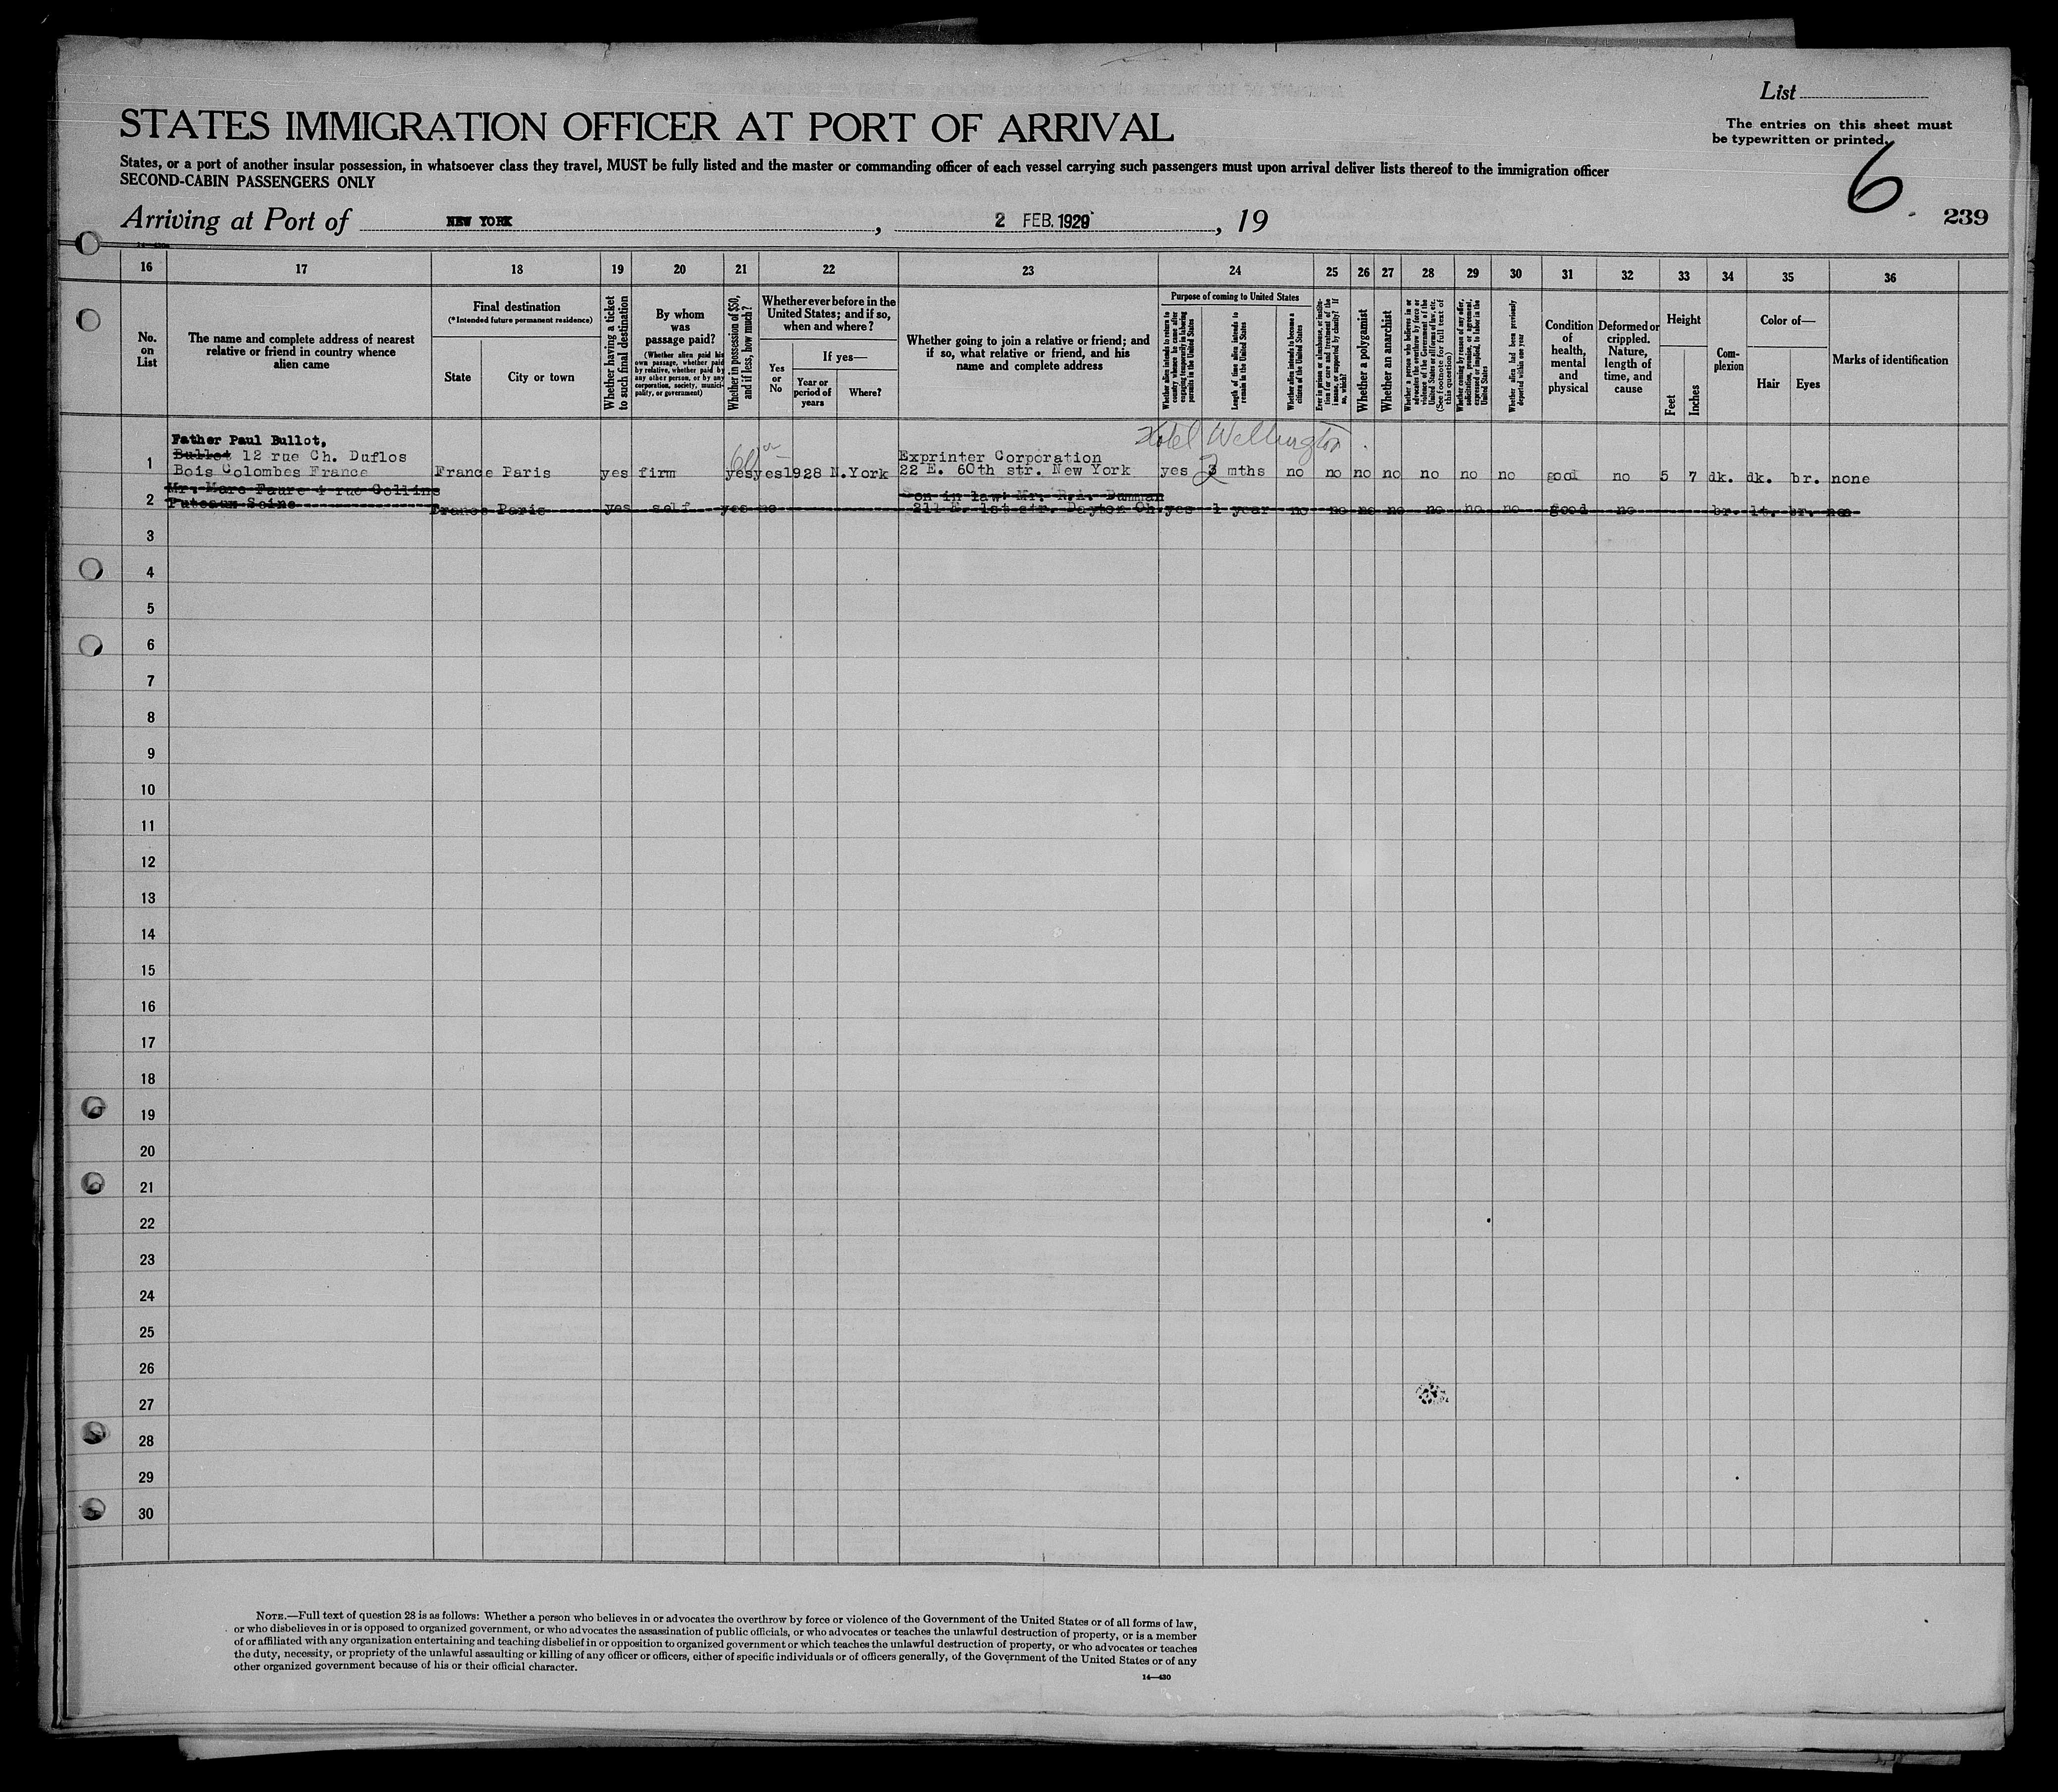 List
The entries on this sheet must
be typewritten or printed.
STATES IMMIGRATION OFFICER AT PORT OF ARRIVAL
States, or a port of another insular possession, in whatsoever class they travel, MUST be fully listed and the master or commanding officer of each vessel carrying such passengers must upon arrival deliver lists thereof to the immigration officer
SECOND-CABIN PASSENGERS ONLY
6
239
Arriving at Port of NEW YORK , 2 FEB. 1929 , 19
16 17 18 19 20 21 22 23 24 25 26 27 28 29 30 31 32 33 34 35 36
No.
on
List
The name and complete address of nearest
relative or friend in country whence
alien came
Final destination
(*Intended future permanent residence)
State
City or town
Whether having a ticket
to such final destination
By whom
was
passage paid?
(Whether alien paid his
own passage, whether paid
by relative, whether paid by
any other person, or by any
corporation, society, munici-
pality, or government)
Whether in possession of $50,
and if less, how much?
Whether ever before in the
United States; and if so,
when and where?
Yes
or
No
If yes—
Year or
period of
years
Where?
Whether going to join a relative or friend; and
if so, what relative or friend, and his
name and complete address
Purpose of coming to United States
Whether alien intends to return to
country whence he came after
engaging temporarily in laboring
pursuits in the United States
Length of time alien intends to
remain in the United States
Whether alien intends to become a
citizen of the United States
Ever in prison or almshouse, or institu-
tion for care and treatment of the
insane, or supported by charity? If
so, which?
Whether a polygamist
Whether an anarchist
Whether a person who believes in or
advocates the overthrow by force or
violence of the Government of the
United States or all forms of law, etc.
(See footnote for full text of
this question)
Whether coming by reason of any offer,
solicitation, promise, or agreement,
expressed or implied, to labor in the
United States
Whether alien had been previously
deported within one year
Condition
of
health,
mental
and
physical
Deformed or
crippled.
Nature,
length of
time, and
cause
Height
Feet
Inches
Com-
plexion
Color of—
Hair
Eyes
Marks of identification
Hotel Wellington
Father Paul Bullot,
Bullot 12 rue Ch. Duflos Exprinter Corporation
1 Bois Colombes France France Paris yes firm yes yes 1928 N.York 22 E. 60th str. New York yes 3 mths no no no no no no no good no 5 7 dk. dk. br. none
Mr. Marc Faure 4 rue Collins Son in law: Mr. R.A. Damman
2 Puteaux Seine France Paris yes self yes no 211 E. 1st str. Dayton Oh. yes 1 year no no no no no no no good no br. lt. br.
3
4
5
6
7
8
9
10
11
12
13
14
15
16
17
18
19
20
21
22
23
24
25
26
27
28
29
30
NOTE.—Full text of question 28 is as follows: Whether a person who believes in or advocates the overthrow by force or violence of the Government of the United States or of all forms of law,
or who disbelieves in or is opposed to organized government, or who advocates the assassination of public officials, or who advocates or teaches the unlawful destruction of property, or is a member
of or affiliated with any organization entertaining and teaching disbelief in or opposition to organized government or which teaches the unlawful destruction of property, or who advocates or teaches
the duty, necessity, or propriety of the unlawful assaulting or killing of any officer or officers, either of specific individuals or of officers generally, of the Government of the United States or of any
other organized government because of his or their official character.
14—430